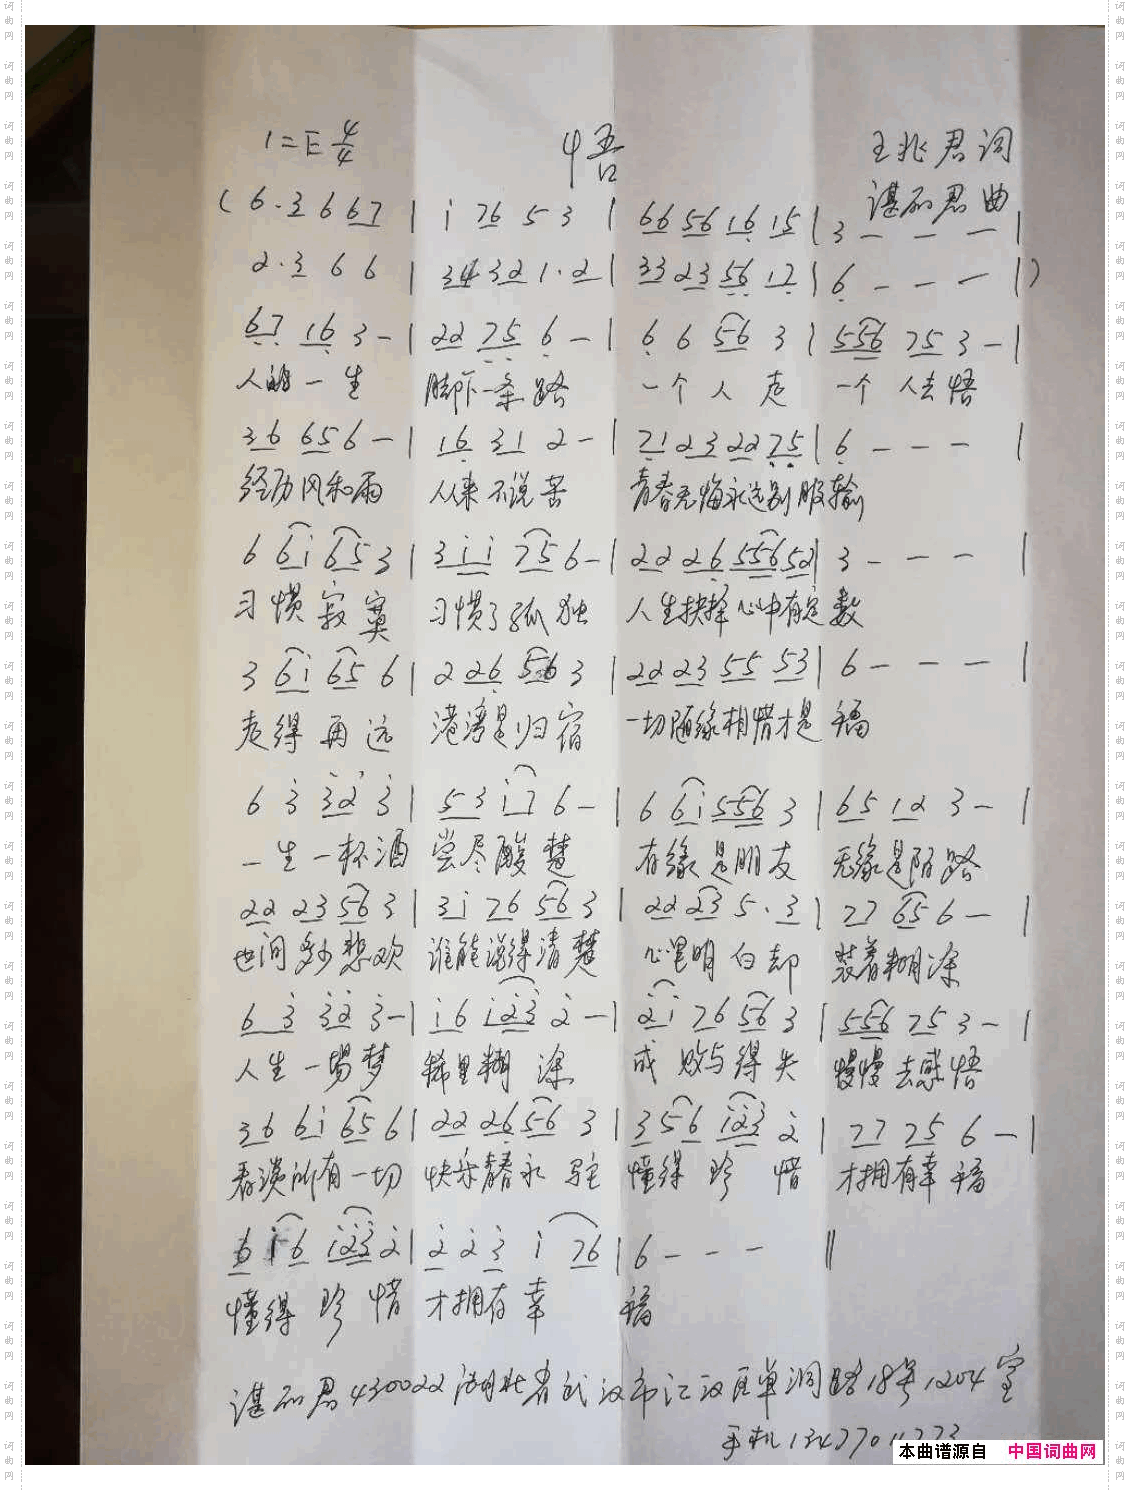 1=E 4/4 悟 王兆君词
谌丽君曲
(6·3 6 67 | i 76 5 3 | 66 56 16 15 | 3 - - - |
2·3 6 6 | 34 32 1·2 | 33 23 56 12 | 6 - - - |)
67 16 3 - | 22 75 6 - | 6 6 56 3 | 556 75 3 - |
人的一生 脚下一条路 一个人走 一个人去悟
36 656 - | 16 31 2 - | 71 23 22 75 | 6 - - - |
经历风和雨 从来不说苦 青春无悔永远别服输
6 6i 65 3 | 3ii 75 6 - | 22 26 556 52 | 3 - - - |
习惯寂寞 习惯了孤独 人生抉择心中有定数
3 6i 65 6 | 2 26 56 3 | 22 23 55 53 | 6 - - - |
走得再远 港湾是归宿 一切随缘相惜才是福
6 3 32 3 | 53 i7 6 - | 6 6i 556 3 | 65 12 3 - |
一生一杯酒 尝尽酸楚 有缘是朋友 无缘是陌路
22 23 56 3 | 3i 76 56 3 | 22 23 5·3 | 77 656 - |
世间多少悲欢 谁能说得清楚 心里明白却 装着糊涂
63 32 3 - | i6 i23 2 - | 2i 76 56 3 | 556 75 3 - |
人生一场梦 稀里糊涂 成败与得失 慢慢去感悟
36 6i 65 6 | 22 26 56 3 | 356 i23 2 | 77 75 6 - |
看淡所有一切 快乐青春永驻 懂得珍惜 才拥有幸福
6 i6 i23 2 | 2 2 3 i 76 | 6 - - - ‖
懂得珍惜 才拥有幸福
谌丽君430022湖北省武汉市江汉区单洞路18号1204室
手机
本曲谱源自 中国词曲网